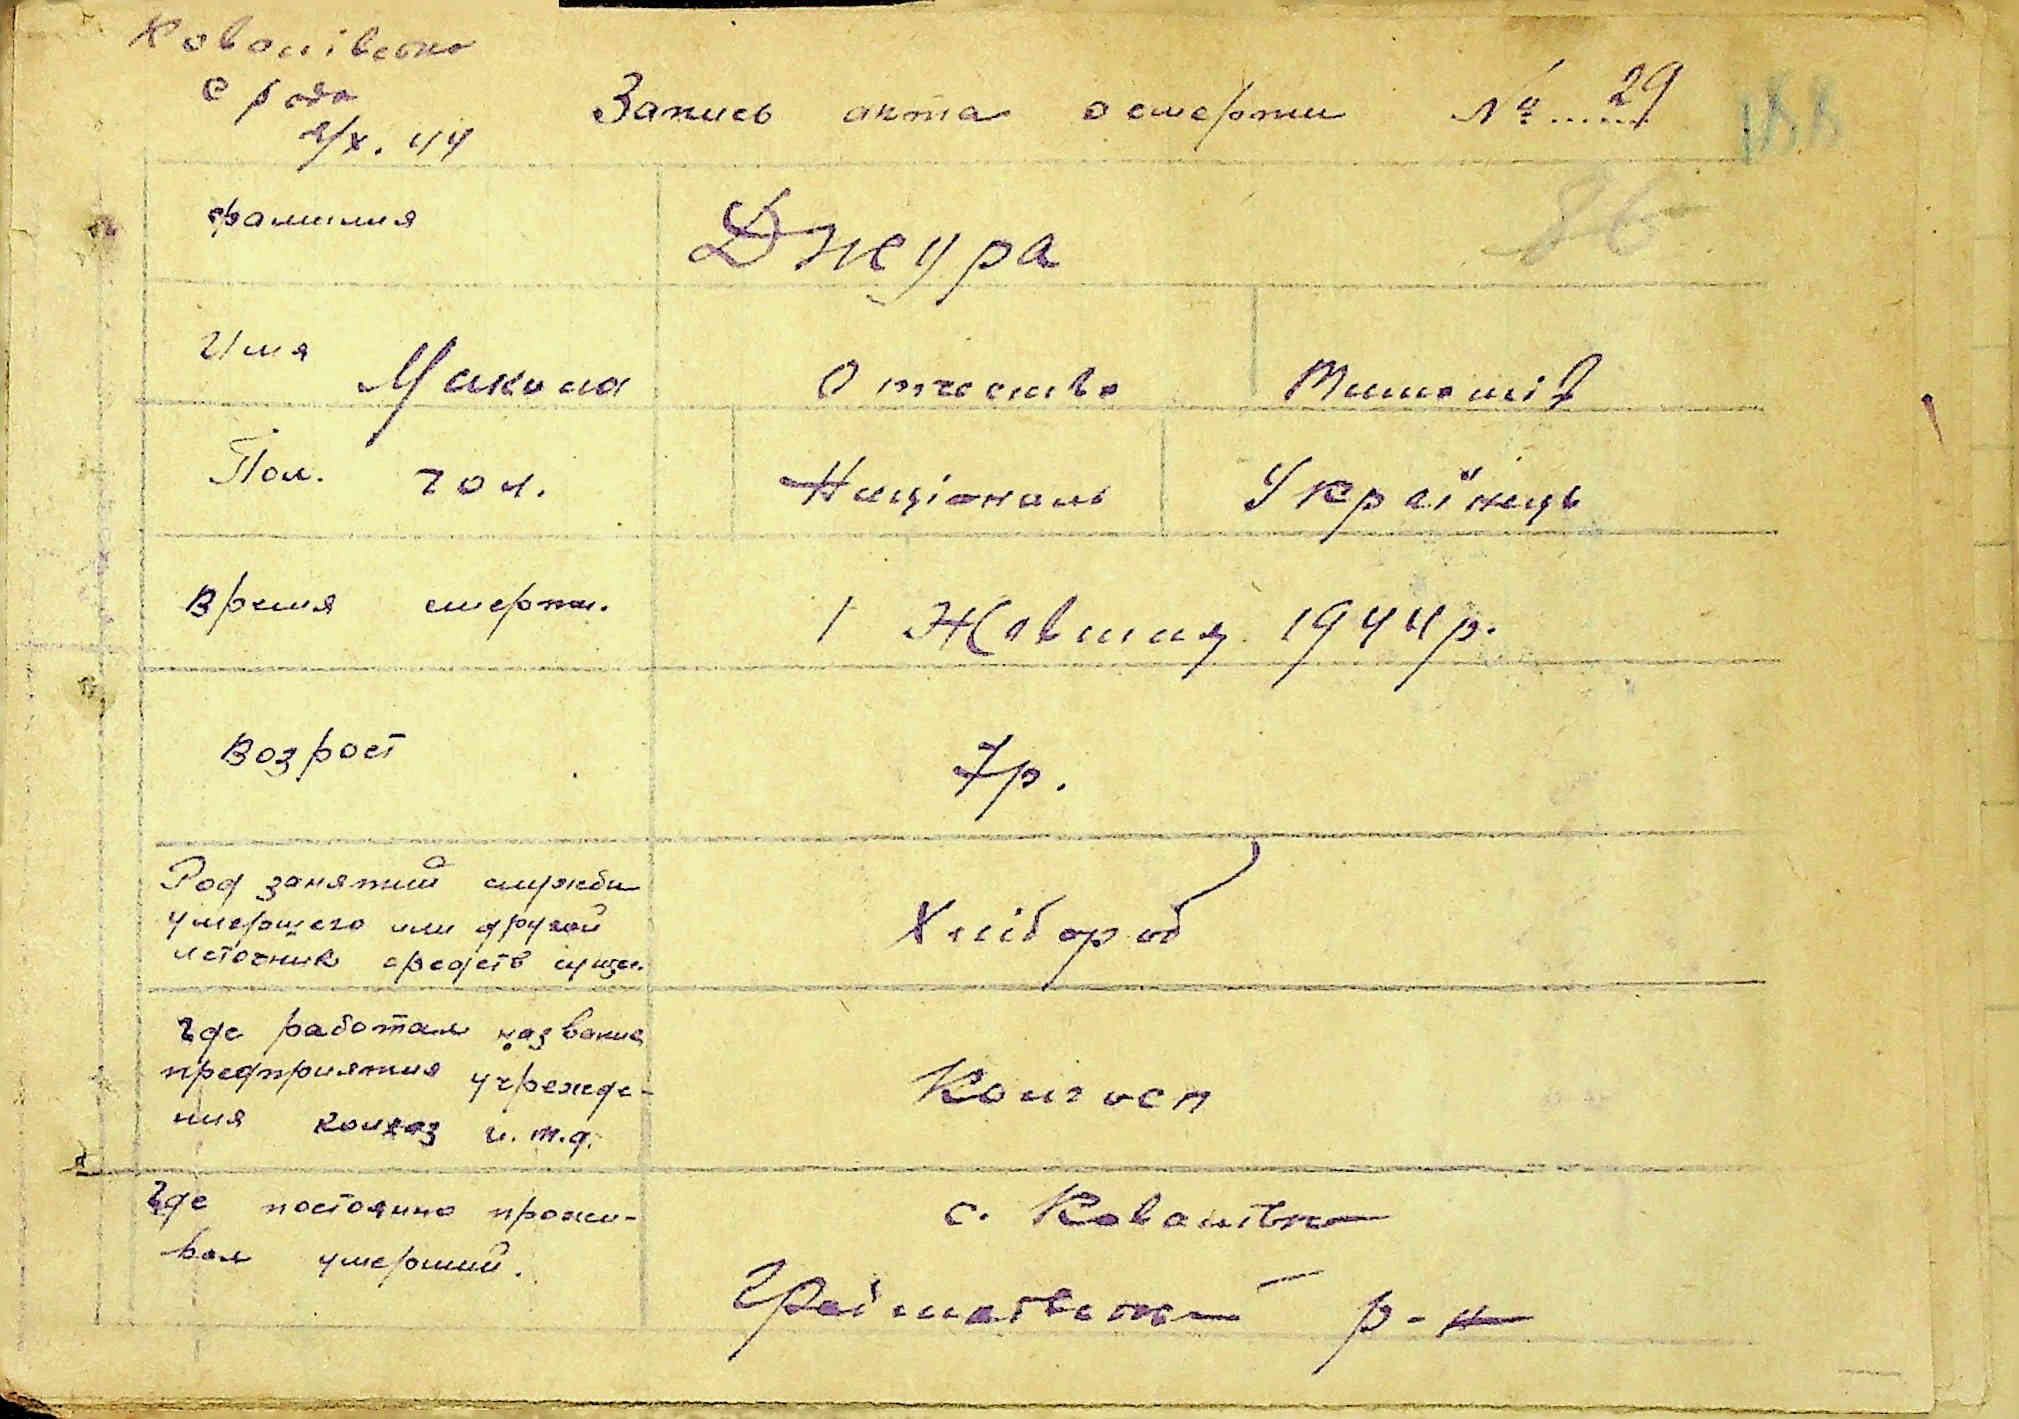 Ковалівська
с/рада
2/X. 44
Запись акта о смерти № 29
188
86
фамилия Джура
Имя Микола Отчество Тимошів
Пол. чол. Національ Українець
Время смерти. 1 Жовтня 1944 р.
Возрост 7 р.
Род занятий служби
умершего или другой
источник средств сущес. Хлібороб
Где работал название
предприятия учрежде-
ния колхоз и. т. д. Колгосп
Где постоянно прожи- с. Ковалівка
вал умерший. р-н